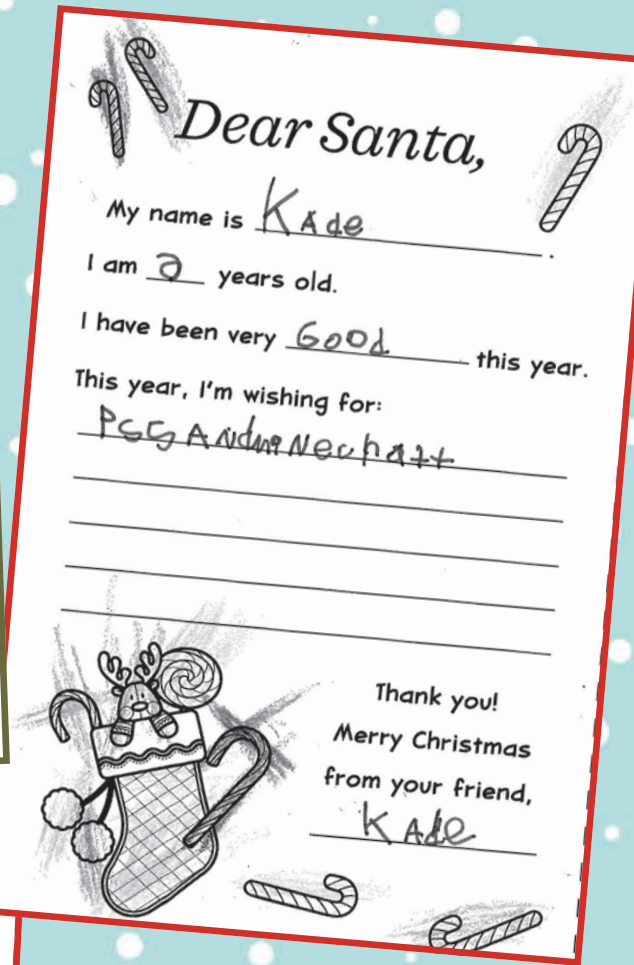 Dear Santa,
My name is KAde.
I am years old.
I have been very Good this year.
This year, I'm wishing for:
PS5 ANd
Thank you!
Merry Christmas
from your friend,
KAde